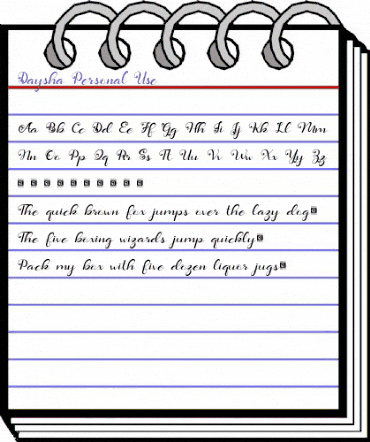 Daysha Personal Use
Aa Bb Cc Dd Ee Ff Gg Hh Ii Jj Kk Ll Mm
Nn Oo Pp Qq Rr Ss Tt Uu Vv Ww Xx Yy Zz
The quick brown fox jumps over the lazy dog
The five boxing wizards jump quickly
Pack my box with five dozen liquor jugs